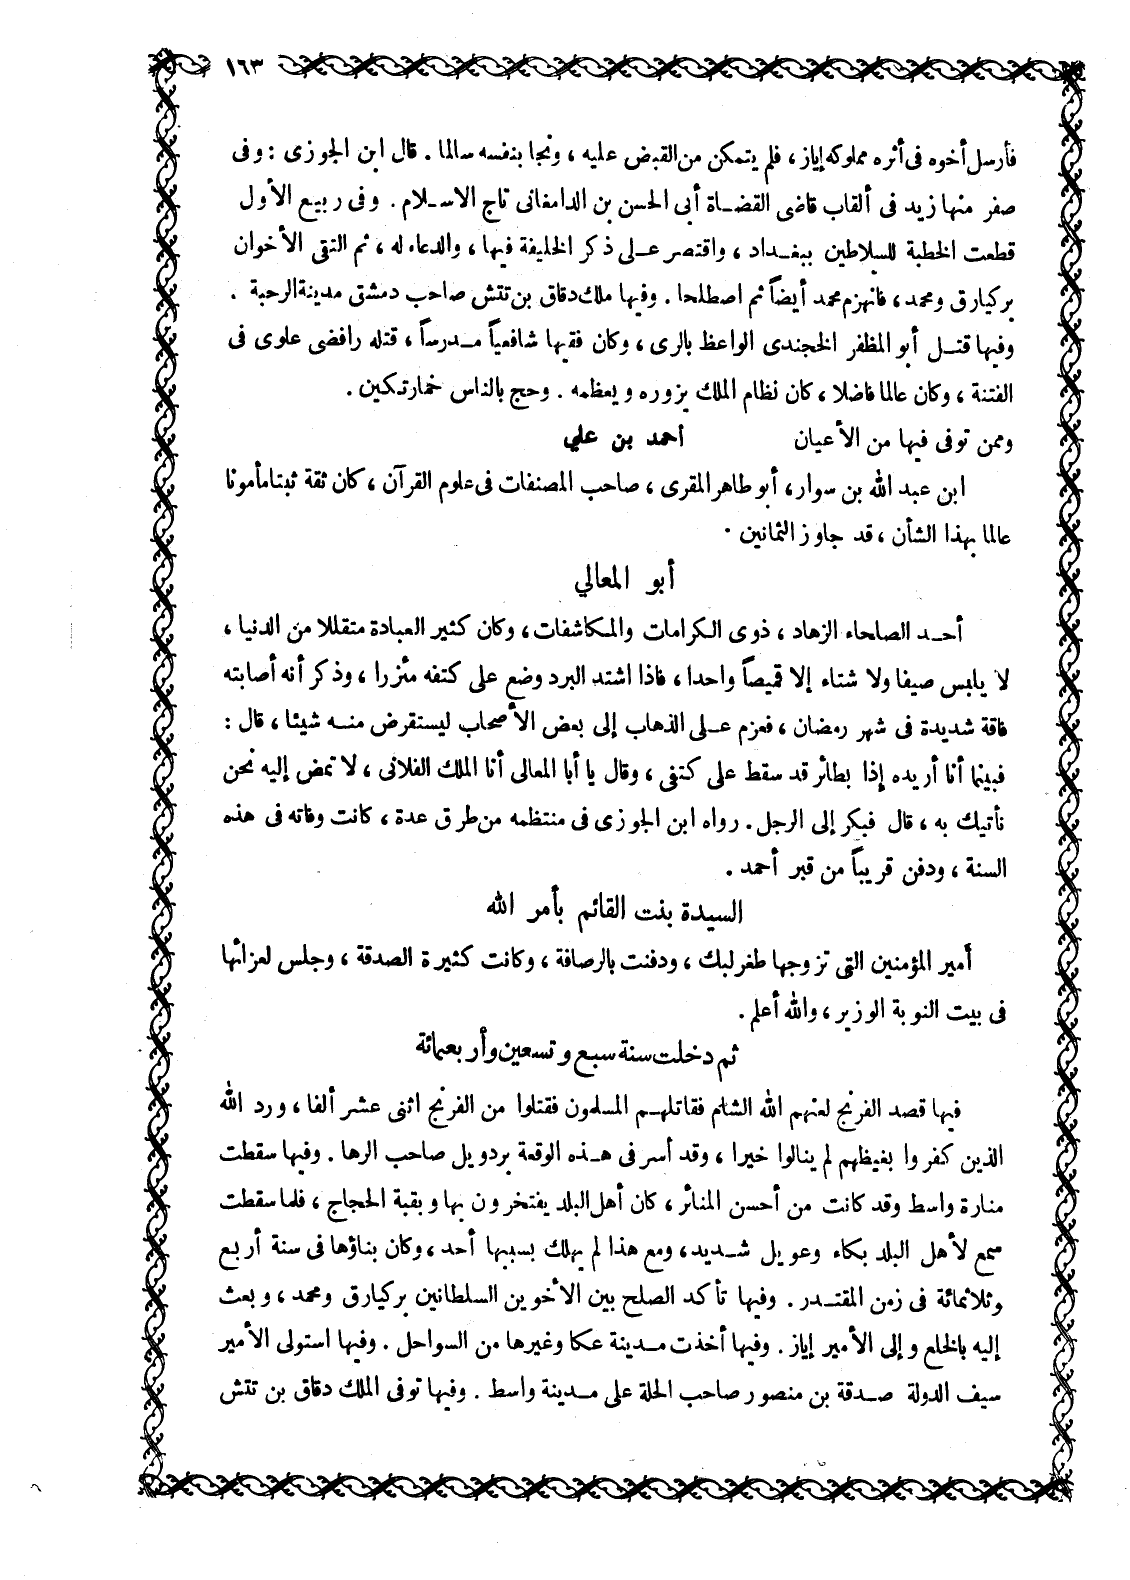 ١٦٣
فأرسل أخوه فى أثره مملوكه إياز ، فلم يتمكن من القبض عليه ، ونجا بنفسه سالما . قال ابن الجوزى : وفى
صفر منها زيد فى ألقاب قاضى القضاة أبى الحسن بن الدامغانى تاج الاسلام . وفى ربيع الأول
قطعت الخطبة للسلاطين ببغداد ، واقتصر على ذكر الخليفة فيها ، والدعاء له ، ثم التقى الأخوان
بركيارق ومحمد ، فانهزم محمد أيضاً ثم اصطلحا . وفيها ملك دقاق بن تتش صاحب دمشق مدينة الرحبة .
وفيها قتل أبو المظفر الخجندى الواعظ بالرى ، وكان فقيها شافعياً مدرساً ، قتله رافضى علوى فى
الفتنة ، وكان عالما فاضلا ، كان نظام الملك يزوره ويعظمه . وحج بالناس خمارتكين .
وممن توفى فيها من الأعيان أحمد بن علي
ابن عبد الله بن سوار ، أبو طاهر المقرى ، صاحب المصنفات فى علوم القرآن ، كان ثقة ثبتا مأمونا
عالما بهذا الشأن ، قد جاوز الثمانين .
أبو المعالي
أحد الصلحاء الزهاد ، ذوى الكرامات والمكاشفات ، وكان كثير العبادة متقللا من الدنيا ،
لا يلبس صيفا ولا شتاء إلا قميصاً واحدا ، فاذا اشتد البرد وضع على كتفه مئزرا ، وذكر أنه أصابته
فاقة شديدة فى شهر رمضان ، فعزم على الذهاب إلى بعض الأصحاب ليستقرض منه شيئا ، قال :
فبينما أنا أريده إذا بطائر قد سقط على كتفى ، وقال يا أبا المعالى أنا الملك الفلانى ، لا تمض إليه نحن
نأتيك به ، قال فبكر إلى الرجل . رواه ابن الجوزى فى منتظمه من طرق عدة ، كانت وفاته فى هذه
السنة ، ودفن قريباً من قبر أحمد .
السيدة بنت القائم بأمر الله
أمير المؤمنين التى تزوجها طغرلبك ، ودفنت بالرصافة ، وكانت كثيرة الصدقة ، وجلس لعزائها
فى بيت النوبة الوزير ، والله أعلم .
ثم دخلت سنة سبع وتسعين وأربعمائة
فيها قصد الفرنج لعنهم الله الشام فقاتلهم المسلمون فقتلوا من الفرنج اثنى عشر ألفا ، ورد الله
الذين كفروا بغيظهم لم ينالوا خيرا ، وقد أسر فى هذه الوقعة بردويل صاحب الرها . وفيها سقطت
منارة واسط وقد كانت من أحسن المنائر ، كان أهل البلد يفتخرون بها وبقبة الحجاج ، فلما سقطت
سمع لأهل البلد بكاء وعويل شديد ، ومع هذا لم يهلك بسببها أحد ، وكان بناؤها فى سنة أربع
وثلاثمائة فى زمن المقتدر . وفيها تأكد الصلح بين الأخوين السلطانين بركيارق ومحمد ، وبعث
إليه بالخلع وإلى الأمير إياز . وفيها أخذت مدينة عكا وغيرها من السواحل . وفيها استولى الأمير
سيف الدولة صدقة بن منصور صاحب الحلة على مدينة واسط . وفيها توفى الملك دقاق بن تتش